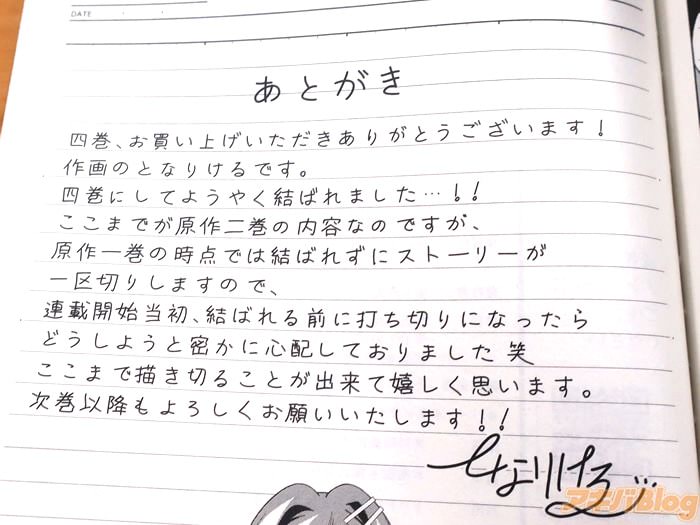 DATE
あとがき
四巻、お買い上げいただきありがとうございます！
作画のとなりけるです。
四巻にしてようやく結ばれました…！！
ここまでが原作二巻の内容なのですが、
原作一巻の時点では結ばれずにストーリーが
一区切りしますので、
連載開始当初、結ばれる前に打ち切りになったら
どうしようと密かに心配しておりました笑
ここまで描き切ることが出来て嬉しく思います。
次巻以降もよろしくお願いいたします！！
となりける
アキバBlog